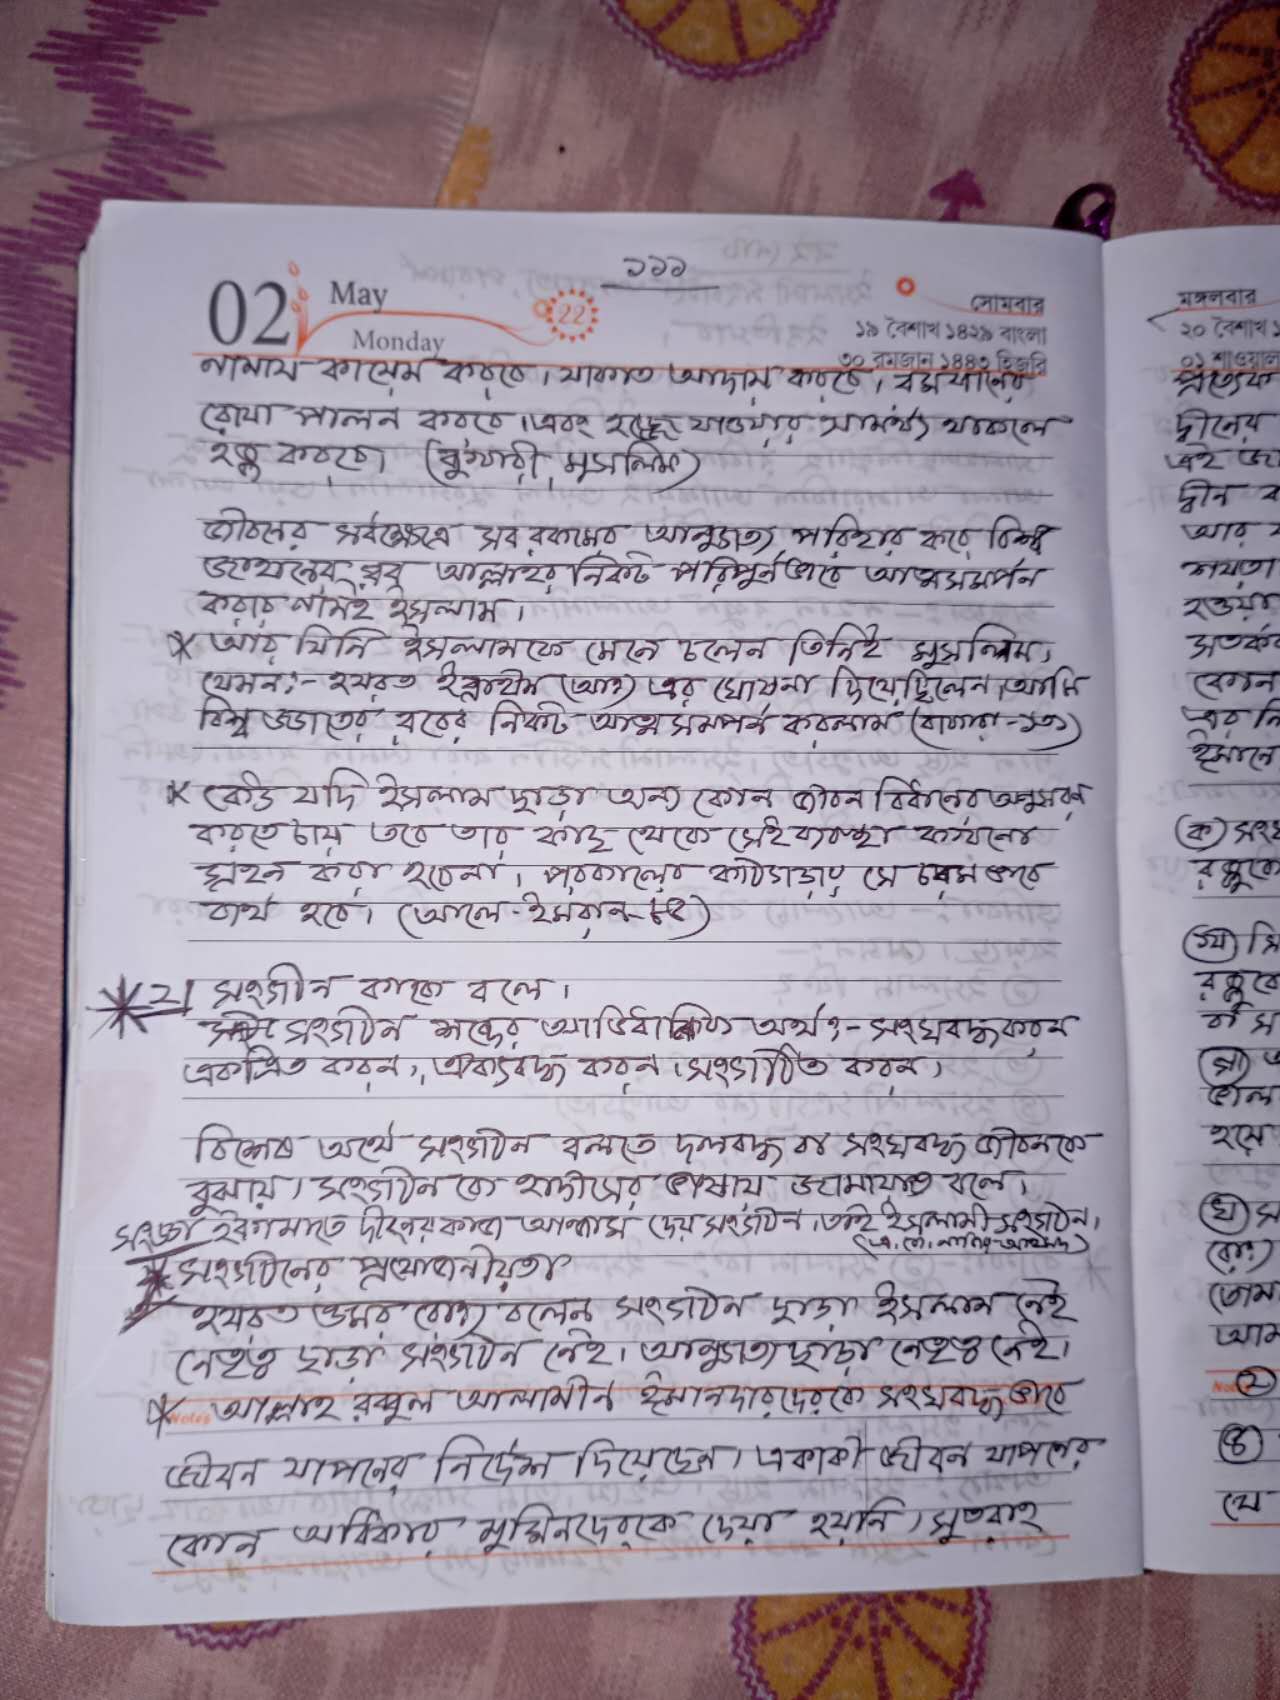 ১১১
02 May
Monday
22
সোমবার
১৯ বৈশাখ ১৪২৯ বাংলা
৩০ রমজান ১৪৪৩ হিজরি
নামায কায়েম করবে। যাকাত আদায় করবে। রমযানের
রোযা পালন করবে। এবং হজ্জে যাওয়ার সামর্থ্য থাকলে
হজ্ব করবে। (বুখারী মুসলিম)
জীবনের সর্বক্ষেত্রে সব রকমের আনুগত্য পরিহার করে বিশ্ব
জাহানের রব্ব আল্লাহর নিকট পরিপূর্নভাবে আত্মসমর্পন
করার নামই ইসলাম।
* আর যিনি ইসলামকে মেনে চলেন তিনিই মুসলিম,
যেমন:- হযরত ইব্রাহীম (আঃ) এর ঘোষনা দিয়েছিলেন, আমি
বিশ্ব জগতের রবের নিকট আত্মসমর্পন করলাম (বাকারা-১৩১)
* কেউ যদি ইসলাম ছাড়া অন্য কোন জীবন বিধানের অনুসরণ
করতে চায় তবে তার কাছ থেকে সেই ব্যবস্থা কখনোও
গ্রহন করা হবেনা। পরকালের কাঠগড়ায় সে চরম ভাবে
ব্যর্থ হবে। (আলে-ইমরান-৮৫)
* ২। সংগঠন কাকে বলে।
সংগঠন শব্দের আভিধানিক অর্থ:- সংঘবদ্ধ করন
একত্রিত করন, ঐক্যবদ্ধ করন, সংগঠিত করন,
বিশেষ অর্থে সংগঠন বলতে দলবদ্ধ বা সংঘবদ্ধ জীবনকে
বুঝায়। সংগঠন কে হাদীসের ভাষায় জামায়াত বলে।
সংজ্ঞা ইকামাতে দ্বীনের কাজ আঞ্জাম দেয় সংগঠন, তাই ইসলামী সংগঠন,
(এ. কে. নাজির আহমদ)
* সংগঠনের প্রয়োজনীয়তা
হযরত ওমর (রাঃ) বলেন সংগঠন ছাড়া ইসলাম নেই
নেতৃত্ব ছাড়া সংগঠন নেই। আনুগত্য ছাড়া নেতৃত্ব নেই।
* আল্লাহ রব্বুল আলামীন ঈমানদারদেরকে সংঘবদ্ধ ভাবে
Notes
জীবন যাপনের নির্দেশ দিয়েছেন। একাকী জীবন যাপনের
কোন অধিকার মুমিনদেরকে দেয়া হয়নি, সুতরাং
মঙ্গলবার
২০ বৈশাখ ১
০১ শাওয়াল
প্রত্যেক
দ্বীনের
এই
দ্বীন
আর
শয়তা
হওয়ার
সতর্ক
কোন
এর নি
ঈমানে
(ক) সংঘ
রজ্জুকে
(খ) সি
রজ্জুকে
বা স
(গ)
হয়ে
(ঘ) স
(রাঃ)
তোমা
আম
২
৪
যে